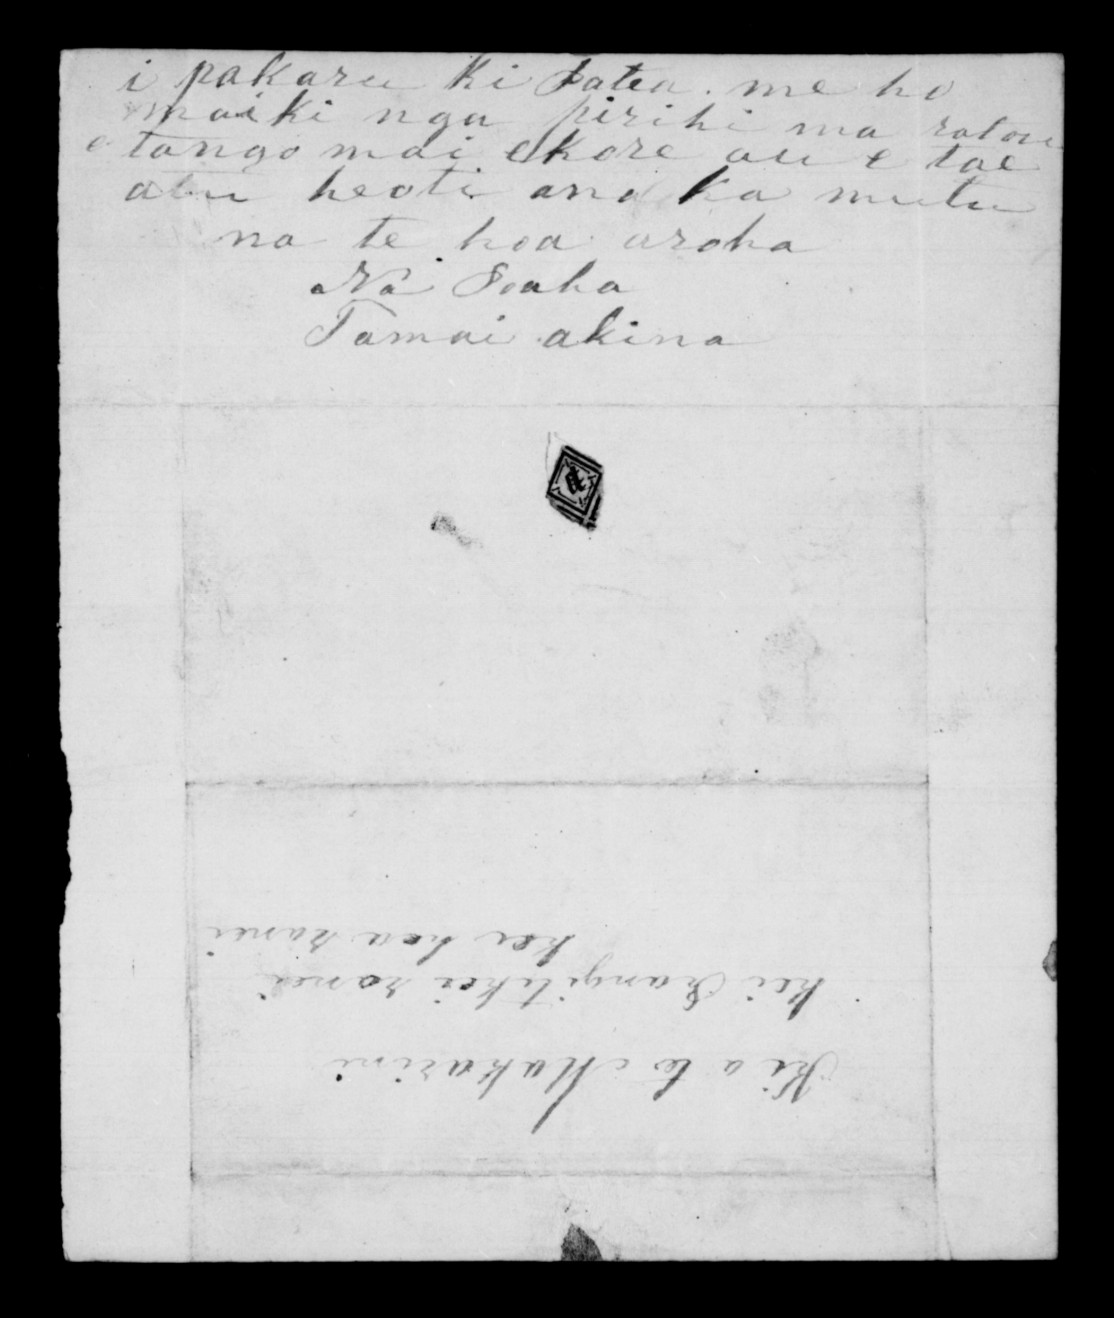 i pakaru ki Patea. me ho
maiki nga pirihi ma ratou
e tango mai ekore au e tae
atu heoti ano ka mutu
na te hoa aroha
Na Ioaha
Tamai akina
Ki a te Makarini
kei Rangitikei ranei
kei hea ranei